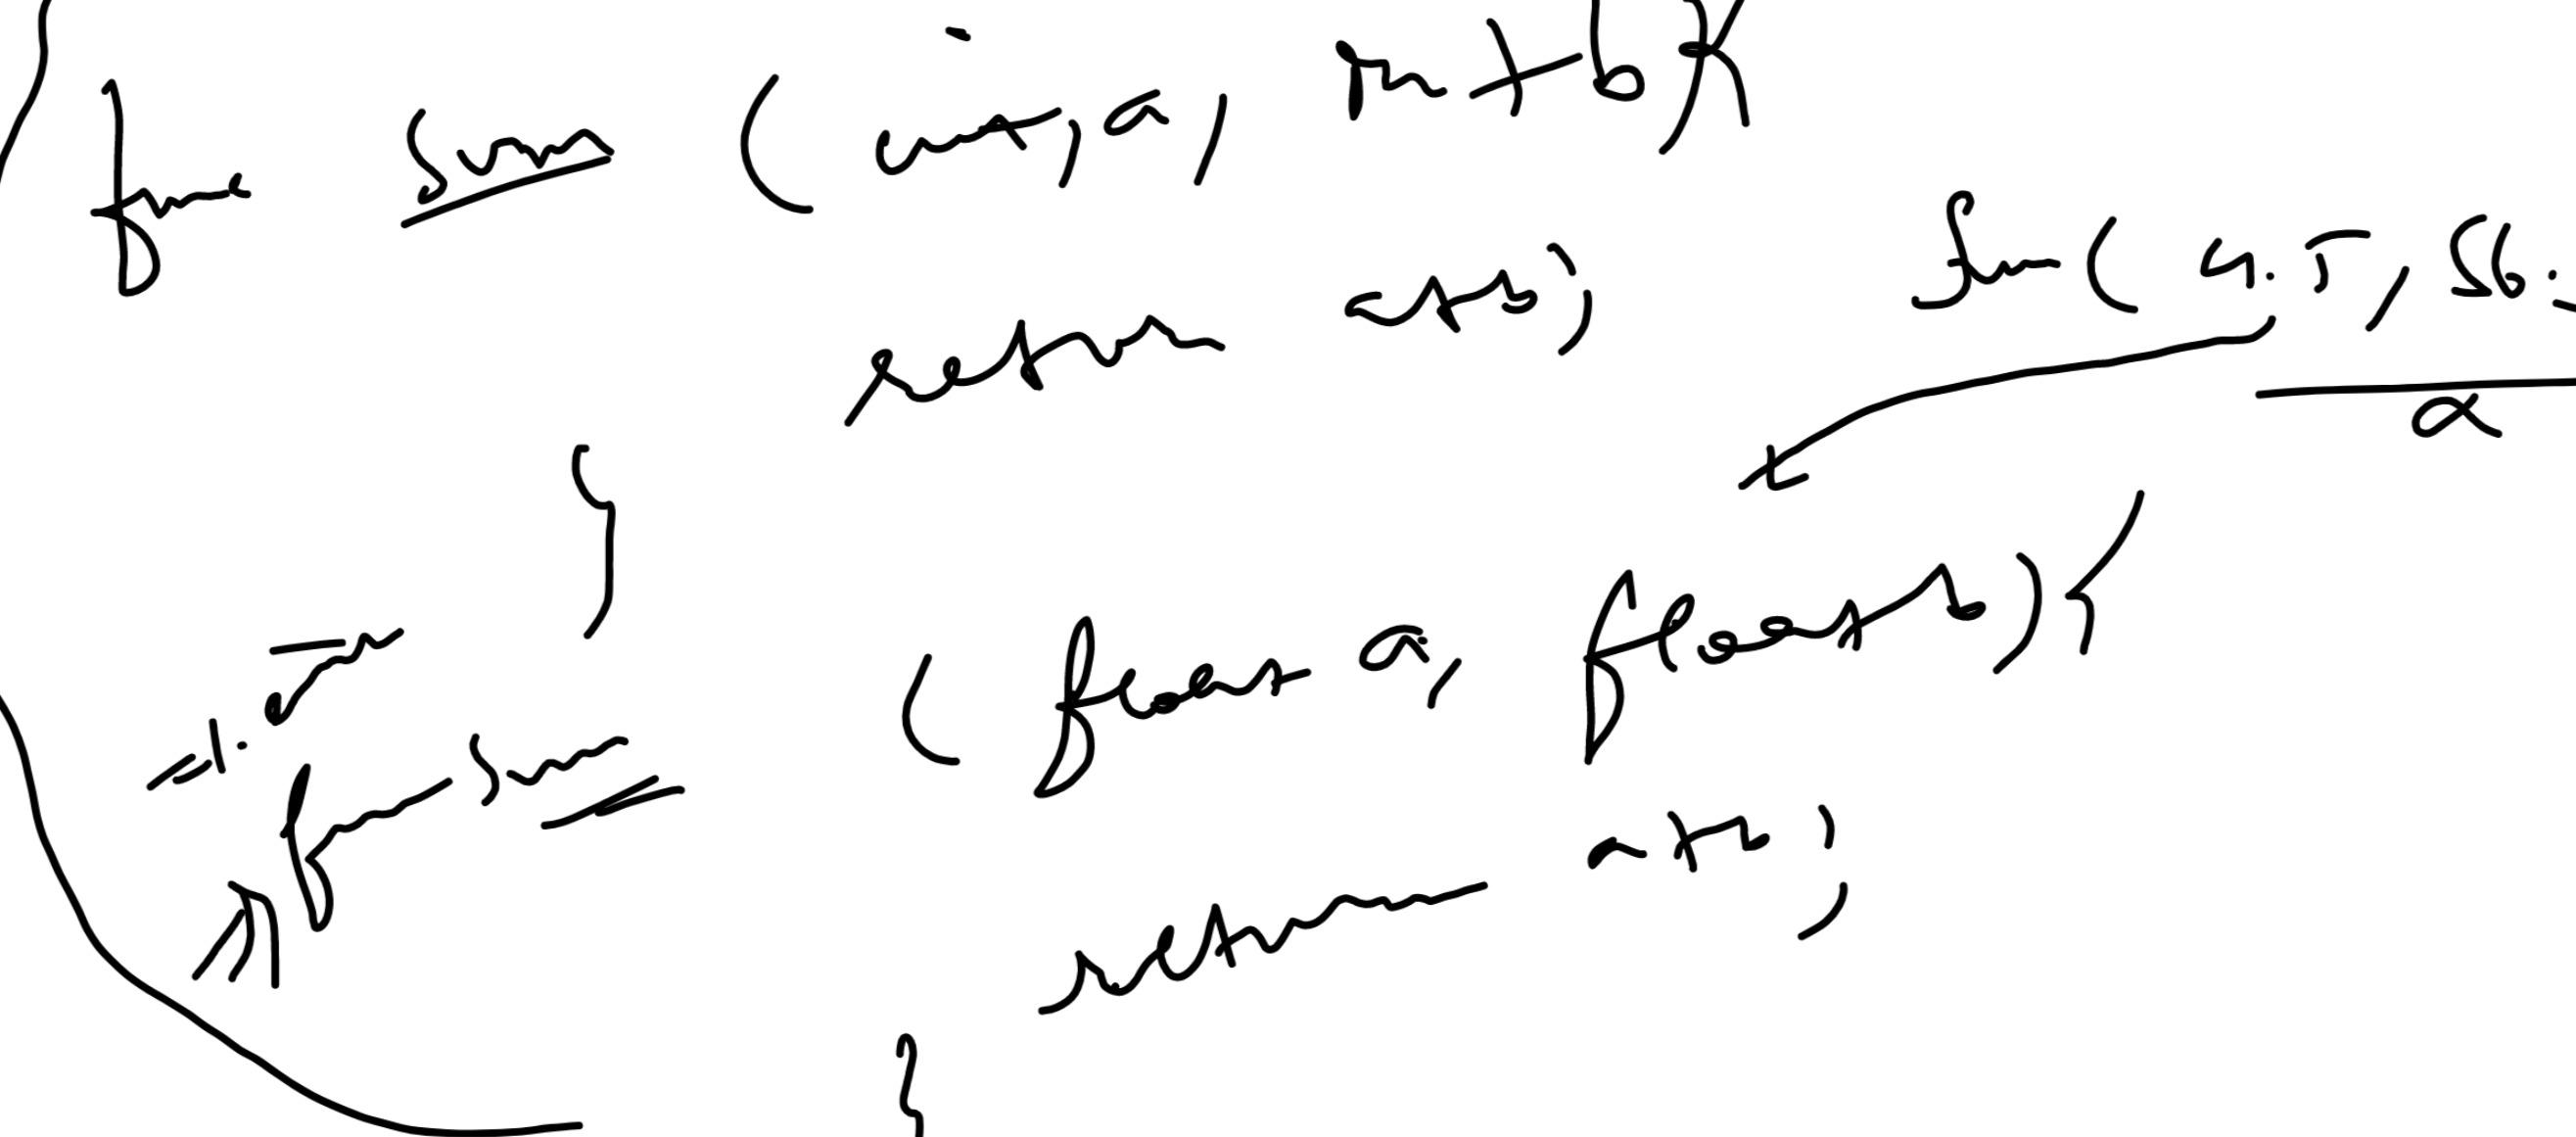 func sum (int, a, int b){
return a+b;
fun( 4.5, 56.
}
func sum ( float a, float b){
return a+b;
}